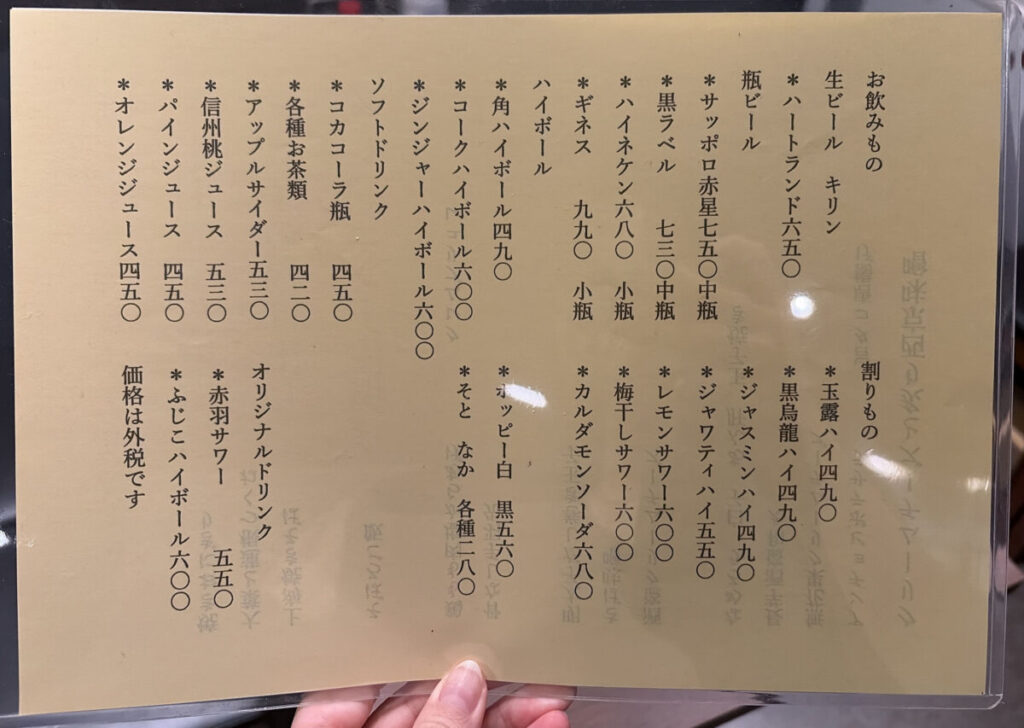 お飲みもの
生ビール　キリン
＊ハートランド六五〇
瓶ビール
＊サッポロ赤星七五〇中瓶
＊黒ラベル　七三〇中瓶
＊ハイネケン六八〇　小瓶
＊ギネス　九九〇　小瓶
ハイボール
＊角ハイボール四九〇
＊コークハイボール六〇〇
＊ジンジャーハイボール六〇〇
ソフトドリンク
＊コカコーラ瓶　四五〇
＊各種お茶類　四二〇
＊アップルサイダー五三〇
＊信州桃ジュース　五三〇
＊パインジュース　四五〇
＊オレンジジュース四五〇
割りもの
＊玉露ハイ四九〇
＊黒烏龍ハイ四九〇
＊ジャスミンハイ四九〇
＊ジャワティハイ五五〇
＊レモンサワー六〇〇
＊梅干しサワー六〇〇
＊カルダモンソーダ六八〇
＊ホッピー白　黒五六〇
＊そと　なか　各種二八〇
オリジナルドリンク
＊赤羽サワー　五五〇
＊ふじこハイボール六〇〇
価格は外税です